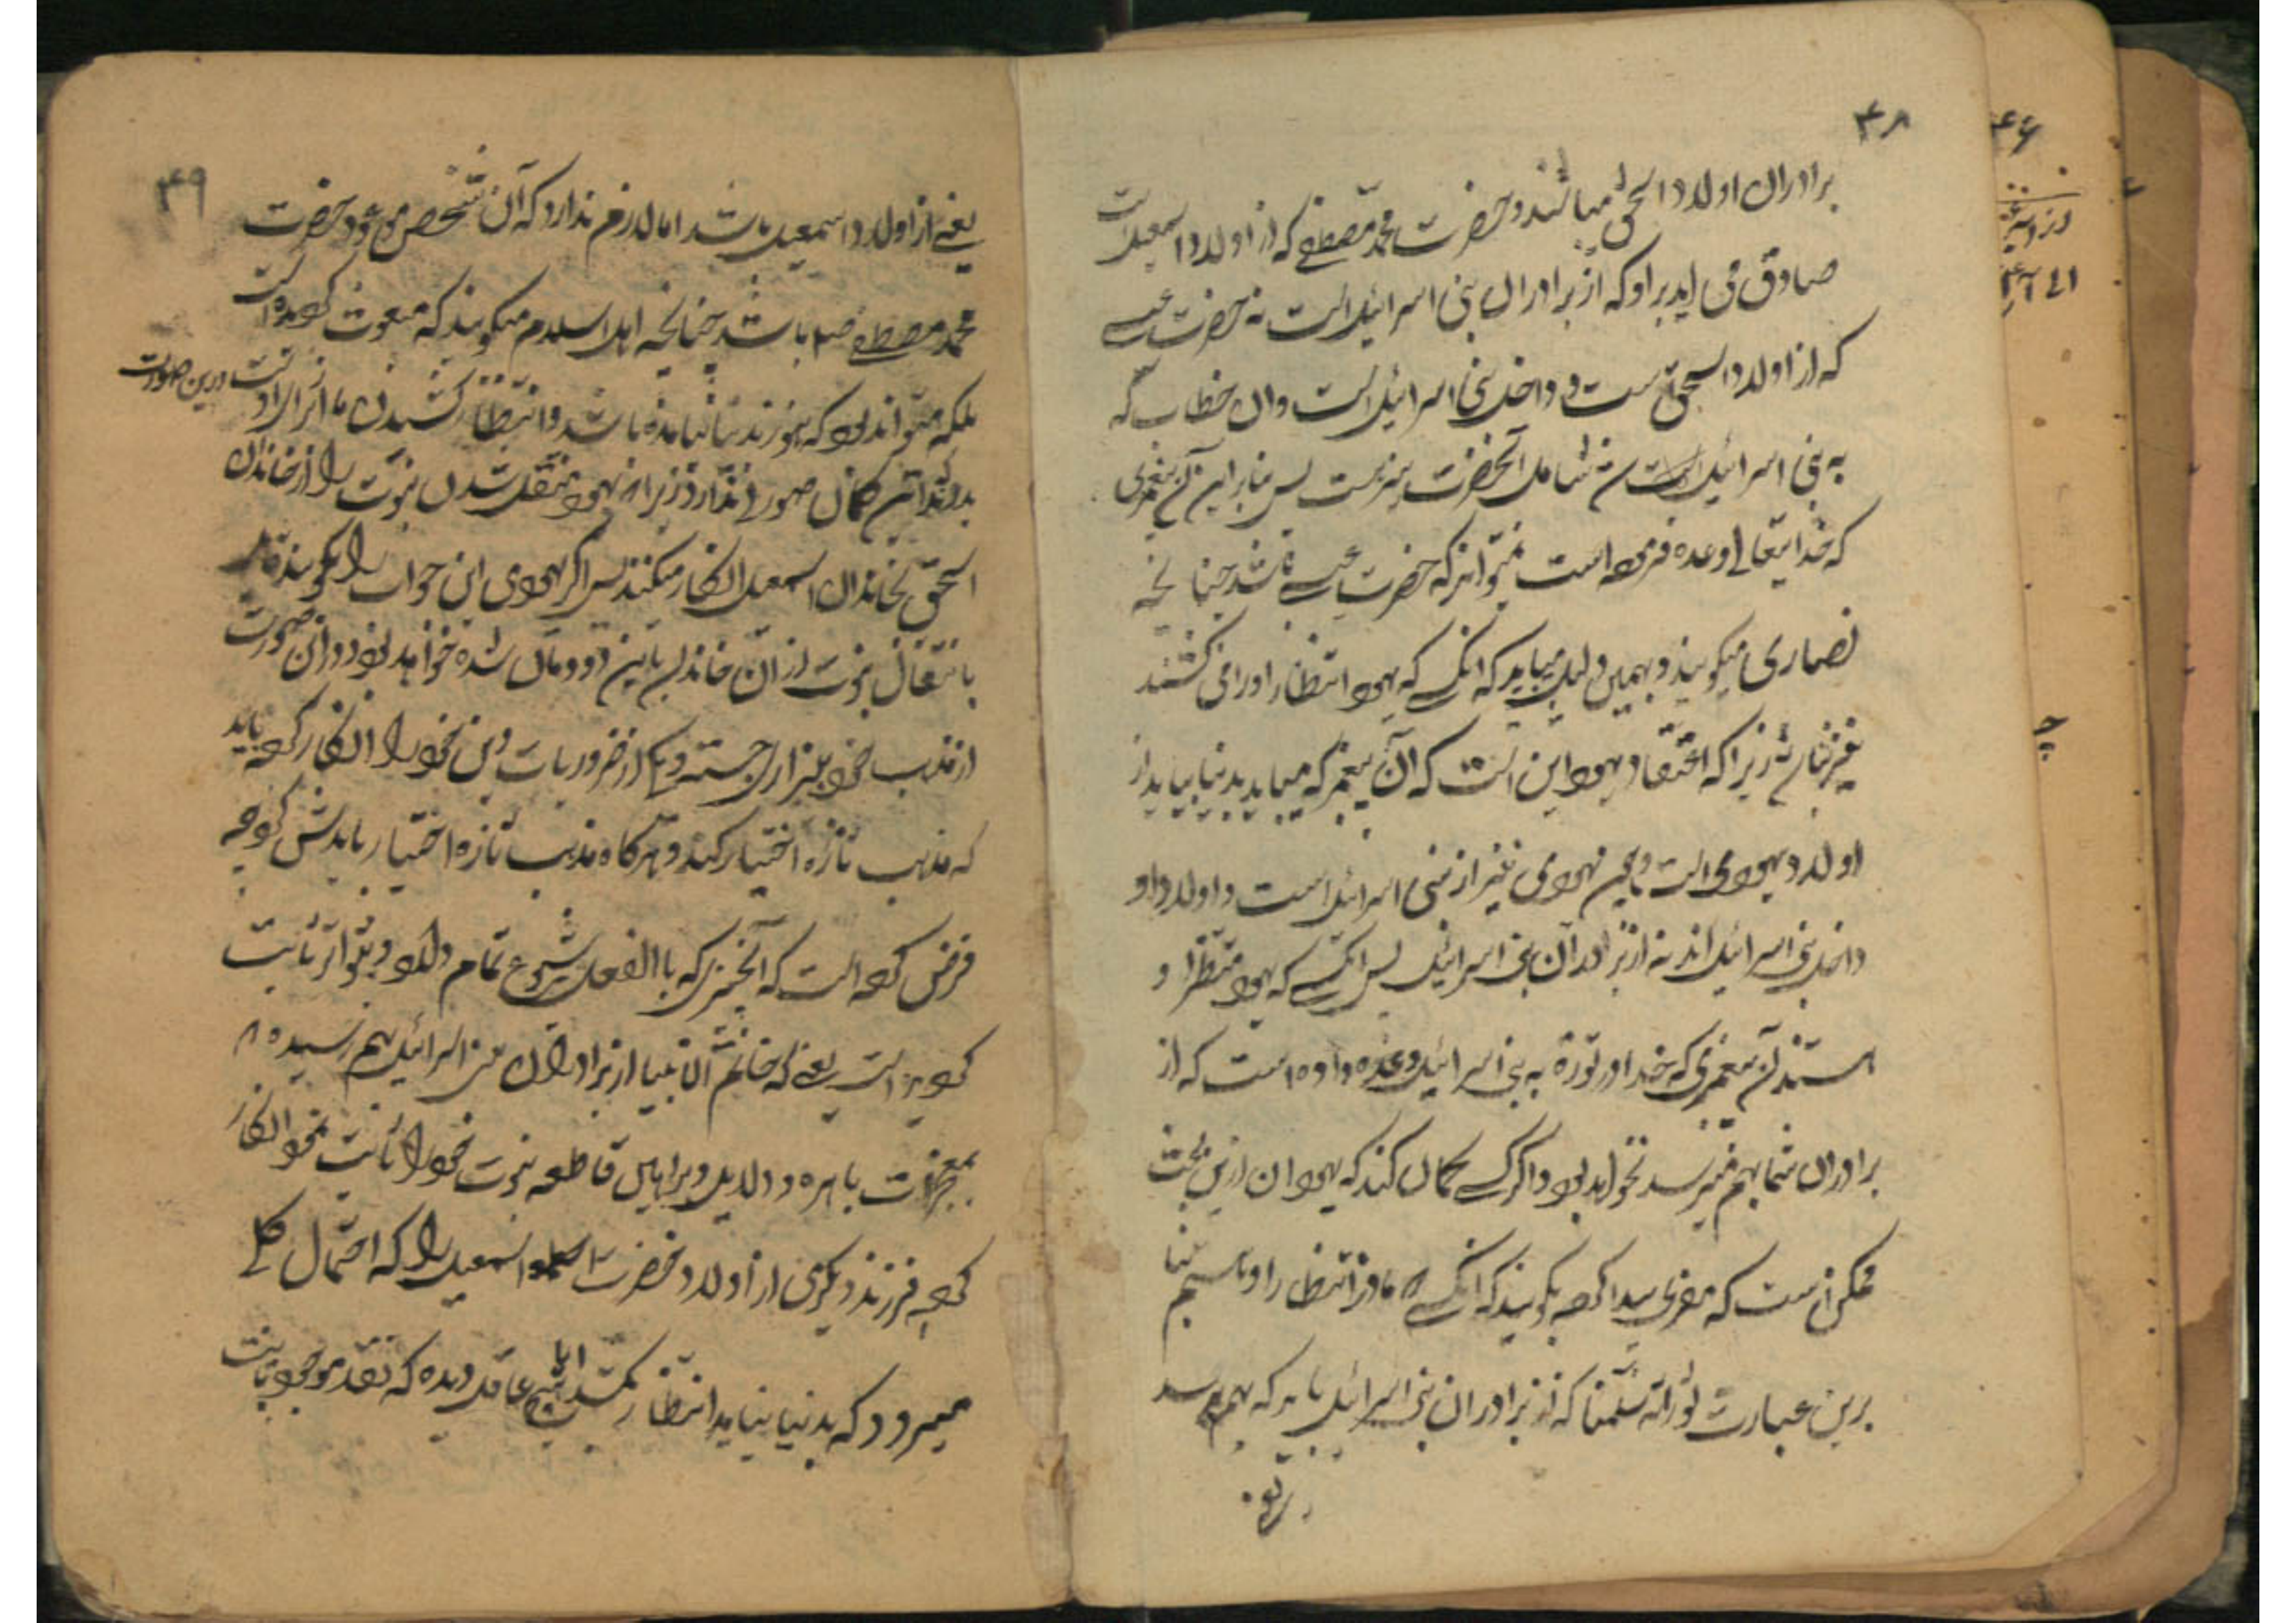 ۴۸
برادران اولاد اسحق میباشند و حضرت محمد مصطفی که از اولاد اسمعیل است
صادق می اید بر او که از برادران بنی اسرائیل است نه حضرت عیسی
که از اولاد اسحق است و داخل بنی اسرائیل است و ان خطاب که
به بنی اسرائیل است شامل آنحضرت نیز هست پس بنابراین آن پیغمبری
که خدایتعالی وعده فرموده است نمیتواند که حضرت عیسی باشد چنانچه
نصاری میگویند و بهمین دلیل میباید که انکسی که یهود انتظار او را می کشند
نیز نباشد زیرا که اعتقاد یهود این است که آن پیغمبر که میباید بدنیا بیاید از
اولاد یهودی است و این یهودی نیز از بنی اسرائیل است و اولاد او
داخل بنی اسرائیل اند نه از برادران بنی اسرائیل پس انکسی که یهود منتظر او
هستند آن پیغمبری که خدا در تورة به بنی اسرائیل وعده داده است که از
برادران شما بهم میرسد نخواهد بود و اگر کسی گمان کند که یهودان ازین بحث
ممکن است که مفری پیدا کرده بگویند که انکسی که ما در انتظار او هستیم بنا
برین عبارت توراته سلمنا که از برادران بنی اسرائیل باید که بهم رسد
یعنی
۴۹
یعنی از اولاد اسمعیل باشد اما لازم ندارد که آن شخص موعود حضرت
محمد مصطفی صلم باشد چنانچه اهل اسلام میگویند که مبعوث گردیده است
بلکه میتواند بود که هنوز بدنیا نیامده باشد و انتظار کشیدن ما از برای اوست درین صورت
بدرستی این گمان صورتی ندارد زیرا که یهود منتقل شدن نبوت را از خاندان
اسحق بخاندان اسمعیل انکار میکنند پس اگر یهودی این جواب را بگوید
بانتقال نبوت از ان خاندان باین دودمان شده خواهد بود و در این صورت
از مذهب خود بیزاری جسته و یکی از ضروریات دین خود را انکار کرده باید
که مذهب تازه اختیار کند و هرگاه مذهب تازه اختیار بایدش کرد چه
فرض کرده است که آنچیزی که بالفعل بشروع تمام دلالت و بتواتر ثابت
گردیده است یعنی که خاتم الانبیا از برادران بنی اسرائیل بهم رسیده
بمعجزات باهره و دلایل و براهین قاطعه نبوت خود را ثابت نمود انکار
کرده فرزند دیگری از اولاد حضرت اسمعیل را که احتمال کلی
میرود که بدنیا نیاید انتظار بکشد ایا هیچ عاقل دیده که نقد موجود ثابت